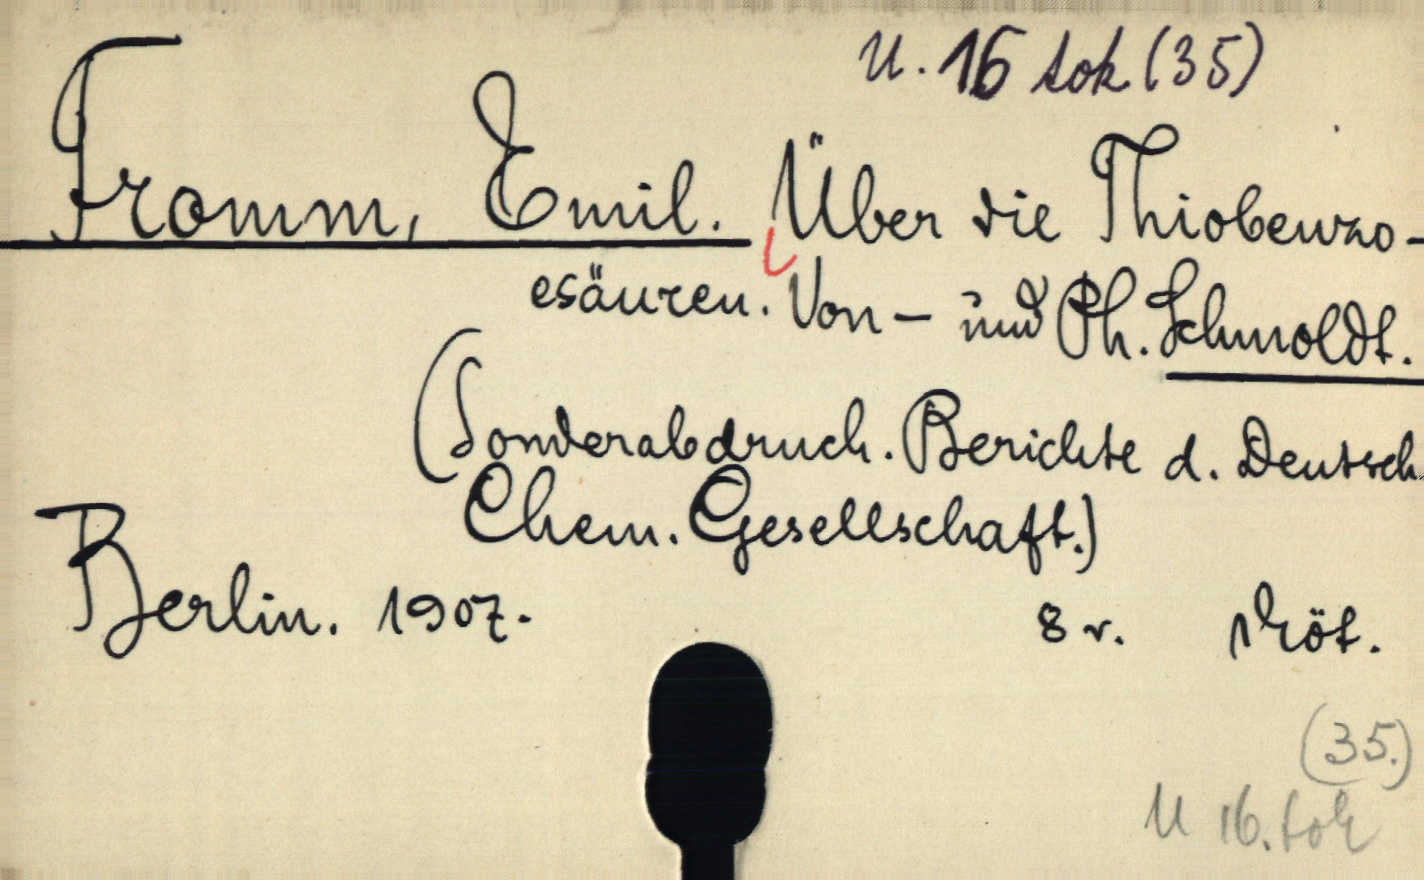 U. 16 tok (35)
Fromm, Emil. Über die Thiobenzo-
esäuren. Von – und Ph. Schmoldt.
(Sonderabdruck. Berichte d. Deutsch.
Chem. Gesellschaft.)
Berlin. 1907. 8 r. köt.
(35.)
U 16. tok